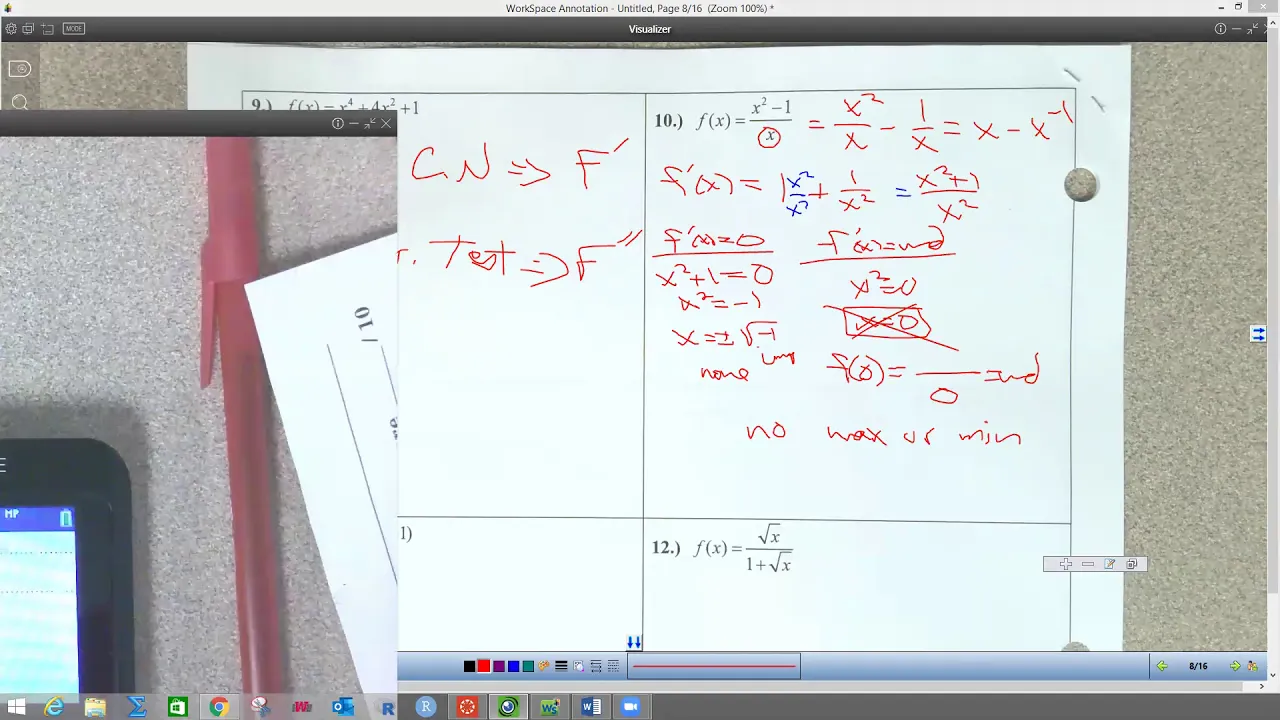 WorkSpace Annotation - Untitled, Page 8/16 (Zoom 100%) *
MODE
Visualizer
9.) f(x) = x⁴ + 4x² + 1
C.N => F'
r. Test => F''
10.) f(x) = (x² − 1)/x = x²/x − 1/x = x − x⁻¹
f'(x) = 1 x²/x² + 1/x² = (x²+1)/x²
f'(x)=0
x²+1=0
x²=-1
x=±√-1
imag
none
f'(x)=und
x²=0
x=0
f(0)= /0 =und
no max or min
1)
12.) f(x) = √x/(1+√x)
/10
E
MP
8/16